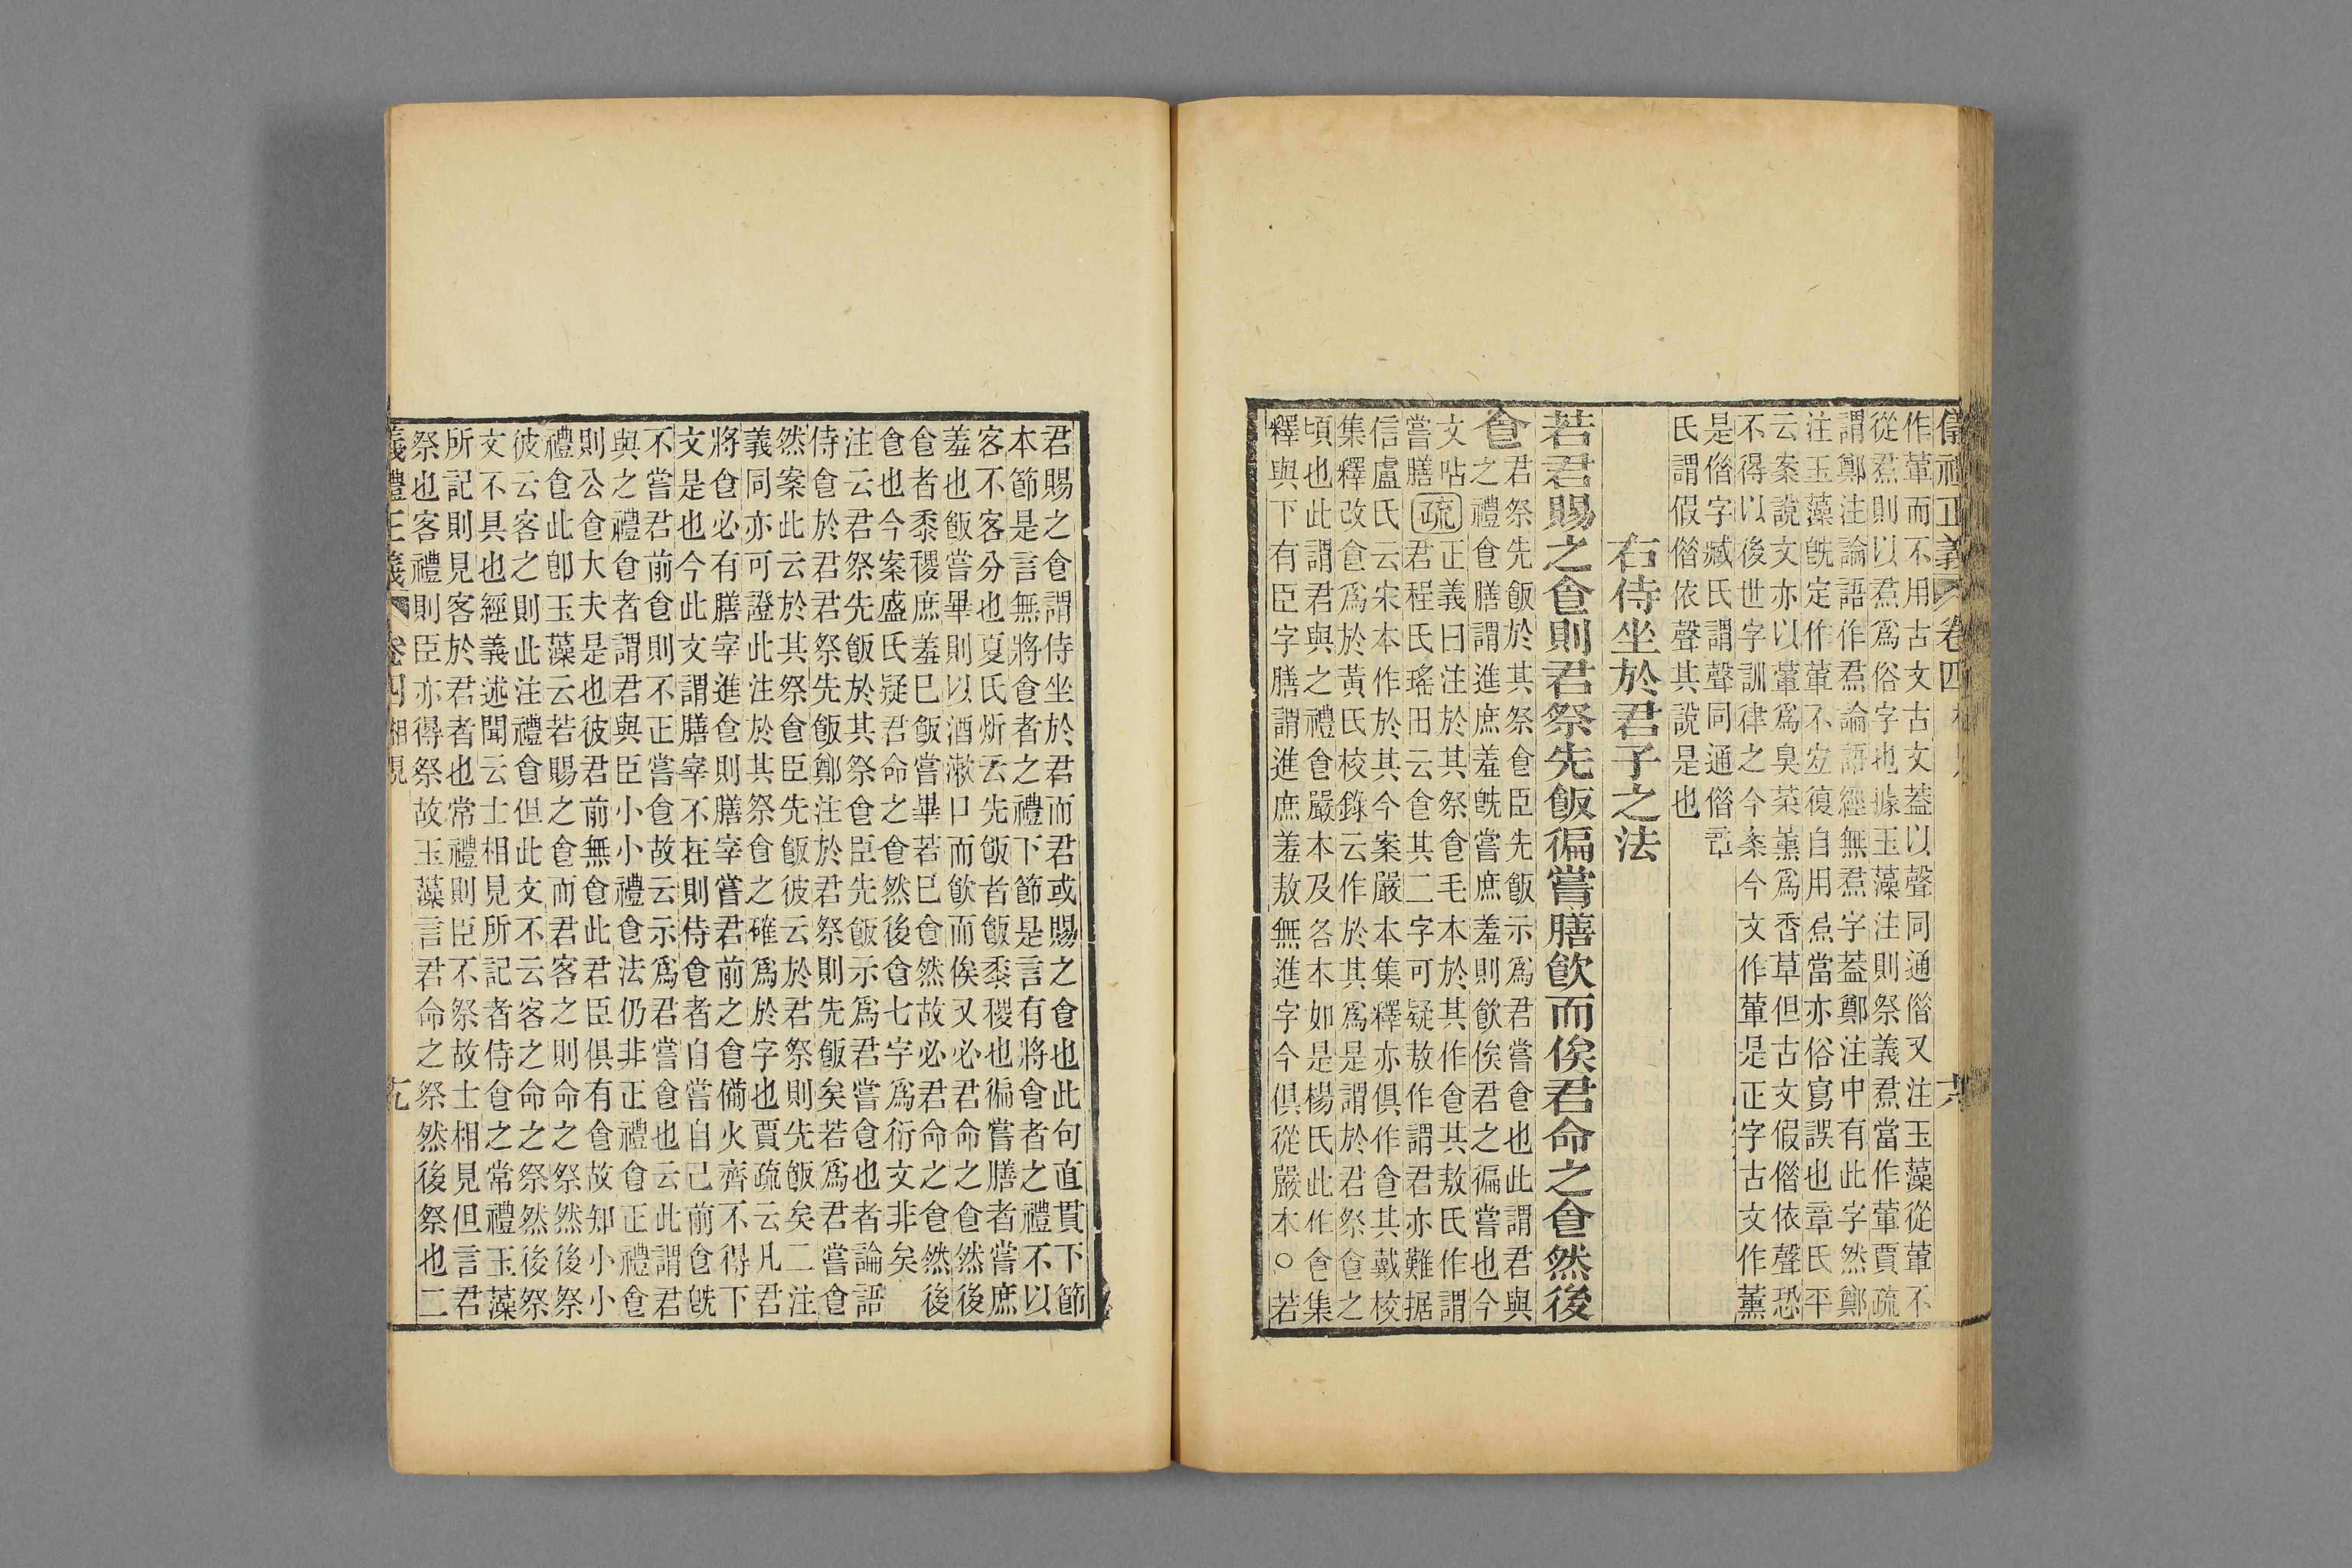 儀禮正義 卷四
作葷而不用古文古文蓋以聲同通偺又注玉藻從葷不
從焄則以焄爲俗字也據玉藻注則祭義焄當作葷賈疏
謂鄭注論語作焄論語經無焄字蓋鄭注中有此字然鄭
注玉藻旣定作葷不宏復自用焄當亦俗寫誤也章氏平
云案說文亦以葷爲臭菜薰爲香草但古文假偺依聲恐
不得以後世字訓律之今案今文作葷是正字古文作薰
是偺字臧氏謂聲同通偺章
氏謂假偺依聲其說是也
右侍坐於君子之法
若君賜之食則君祭先飯徧嘗膳飮而俟君命之食然後
食
君祭先飯於其祭食臣先飯示爲君嘗食也此謂君與
之禮食膳謂進庶羞旣嘗庶羞則飮俟君之徧嘗也今
文呫
嘗膳
疏
正義曰注於其祭食毛本於其作食其敖氏作謂
君程氏瑤田云食其二字可疑敖作謂君亦難据
信盧氏云宋本作於其今案嚴本集釋亦俱作食其戴校
集釋改食爲於黃氏校錄云作於其爲是謂於君祭食之
頃也此謂君與之禮食嚴本及各本如是楊氏此作食集
釋與下有臣字膳謂進庶羞敖無進字今俱從嚴本○若
君賜之食謂侍坐於君而君或賜之食也此句直貫下節
本節是言無將食者之禮下節是言有將食者之禮不以
客不客分也夏氏炘云先飯者飯黍稷也徧嘗膳者嘗庶
羞也飯嘗畢則以酒漱口而飮而俟又必君命之食然後
食者黍稷庶羞巳飯嘗畢若巳食然故必君命之食然後
食也今案盛氏疑君命之食然後食七字爲衍文非矣
注云君祭先飯於其祭食臣先飯示爲君嘗食也者論語
侍食於君君祭先飯鄭注於君祭則先飯矣若爲君嘗食
然案此云於其祭食臣先飯彼云於君祭則先飯矣二注
義同亦可證此注於其祭食之確爲於字也賈疏云凡君
將食必有膳宰進食則膳宰嘗君前之食備火齊不得下
文是也今此文謂膳宰不在則侍食者自嘗自己前食旣
不嘗君前食則不正嘗食故云示爲君嘗食也云此謂君
與之禮食者謂君與臣小小禮食法仍非正禮食正禮食
則公食大夫是也彼君前無食此君臣俱有食故知小小
禮食此卽玉藻云若賜之食而君客之則命之祭然後祭
彼云客之則此注禮食但此文不云客之命之祭然後祭
文不具也經義述聞云士相見所記者侍食之常禮玉藻
所記則見客於君者也常禮則臣不祭故士相見但言君
祭也客禮則臣亦得祭故玉藻言君命之祭然後祭也二
儀禮正義 卷四 相見